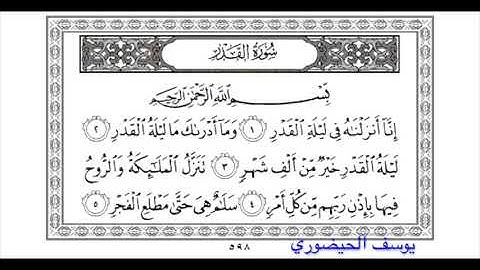 سُورَةُ القَدْرِ
بِسْمِ اللَّهِ الرَّحْمَٰنِ الرَّحِيمِ
إِنَّا أَنزَلْنَٰهُ فِى لَيْلَةِ الْقَدْرِ ١ وَمَا أَدْرَىٰكَ مَا لَيْلَةُ الْقَدْرِ ٢
لَيْلَةُ الْقَدْرِ خَيْرٌ مِّنْ أَلْفِ شَهْرٍ ٣ تَنَزَّلُ الْمَلَٰٓئِكَةُ وَالرُّوحُ
فِيهَا بِإِذْنِ رَبِّهِم مِّن كُلِّ أَمْرٍ ٤ سَلَٰمٌ هِىَ حَتَّىٰ مَطْلَعِ الْفَجْرِ ٥
يوسف الحيضوري
٥٩٨